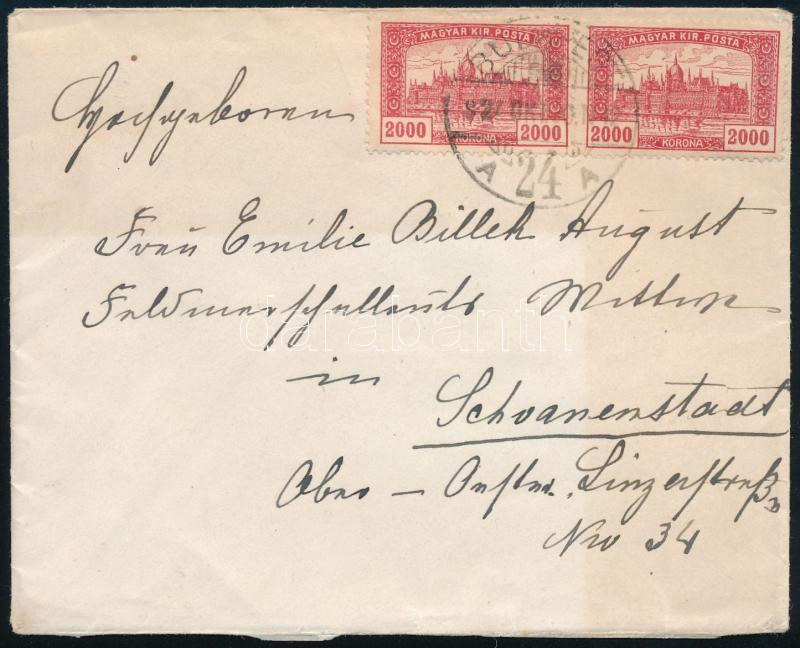 MAGYAR KIR. POSTA
2000 KORONA 2000
MAGYAR KIR. POSTA
2000 KORONA 2000
A 24 A
Hochgeboren
Frau Emilie Billek August
Feldmarschalleuts Wittwe
in
Schwanenstadt
Ober - Oester. Linzerstraß
Nro 34
darabanth